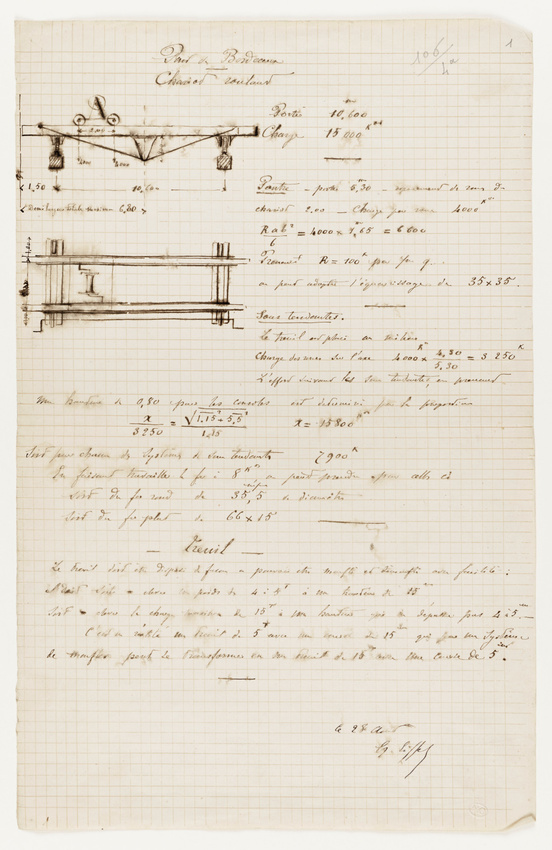 106/4a
1
Pont de Bordeaux
Chariot roulant
Portée 10,600
Charge 15 000 K
2,00
1,50 10,60
6,30
Poutre – portée 6,30 – espacement de roues du
chariot 2.00 – Charge par roue 4000 K
R a b² / 6 = 4000 × 1,65 = 6600
Prenant R = 100 K par
on peut adopter l'équarrissage de 35 × 35.
Sous tendantes.
Le treuil est placé au milieu
Charge des roues sur l'axe 4000 K × 4,30 / 5,30 = 3250 K
L'effort suivant les sous tendantes, en prenant
une hauteur de 0,80 pour les consoles est déterminé par la proportion
x / 3250 = √1,15² + 5,5² / 1,15 x = 15800 K
Soit pour chacun des systèmes de sous tendante 7900 K
En faisant travailler le fer à 8 K on peut prendre pour celles ci
soit du fer rond de 35,5 de diamètre
soit du fer plat de 66 × 15
– Treuil –
Le treuil doit être disposé de façon à pouvoir être mouflé et démouflé avec facilité :
Il doit soit élever un poids de 4 à 5 T à une hauteur de 15 m
soit élever la charge maxima de 15 T à une hauteur qui ne dépasse pas 4 à 5 m –
C'est en réalité un treuil de 5 T avec une course de 15 m qui par un système
de moufles peut se transformer en un treuil de 15 T avec une course de 5 m.
le 28 Août
G. Eiffel